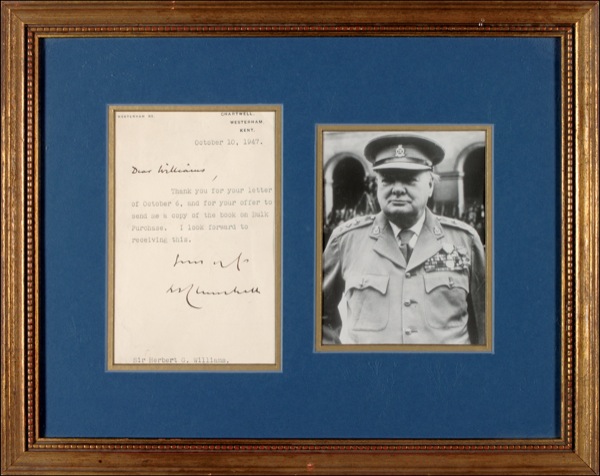 WESTERHAM 93.
CHARTWELL,
WESTERHAM,
KENT.
October 10, 1947.
Dear Williams,
Thank you for your letter
of October 6, and for your offer to
send me a copy of the book on Bulk
Purchase. I look forward to
receiving this.
Yours sily
W. S. Churchill
Sir Herbert G. Williams.